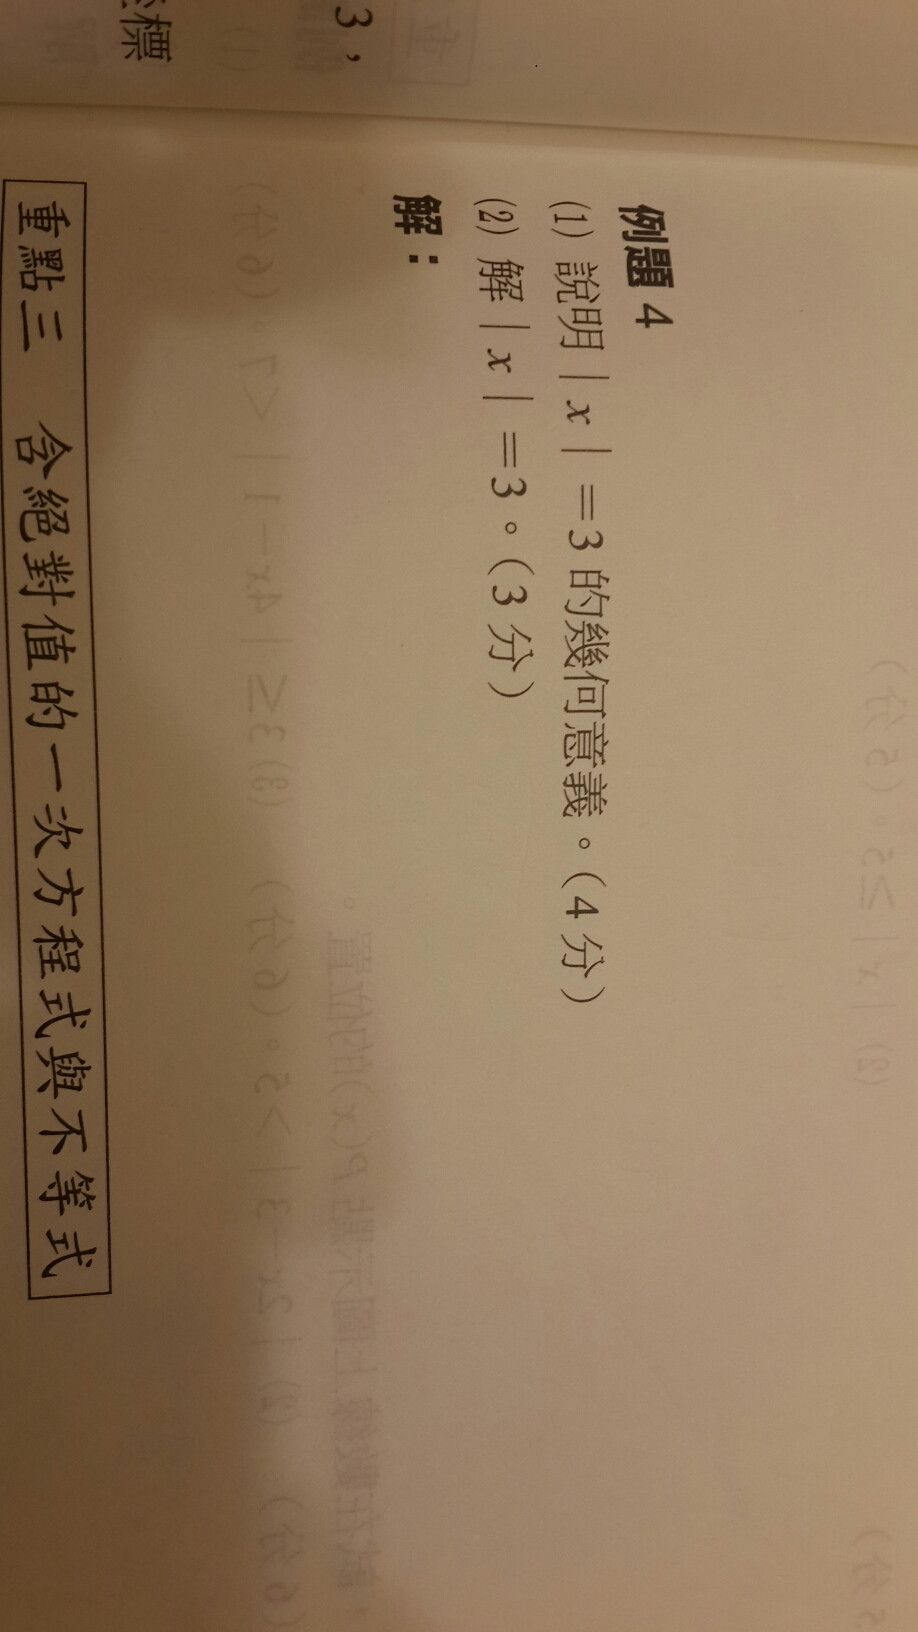 3，
標
例題 4
(1) 說明｜x｜=3 的幾何意義。(4 分)
(2) 解｜x｜=3。(3 分)
解：
重點三　含絕對值的一次方程式與不等式